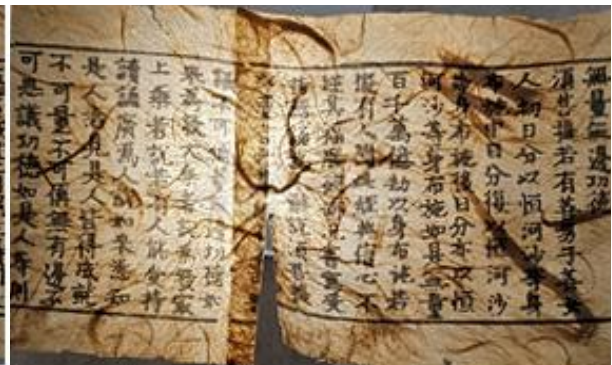 無量無邊功德
須菩提若有善男子善女
人初日分以恒河沙等身
布施中日分復以恒河沙
等身布施後日分亦以恒
河沙等身布施如是無量
百千萬億劫以身布施若
復有人聞此經典信心不
逆其福勝彼何況書寫受
持讀誦爲人解說須菩提
議不可稱量無邊功德如
來爲發大乘者說爲發最
上乘者說若有人能受持
讀誦廣爲人說如來悉知
是人悉見是人皆得成就
不可量不可稱無有邊不
可思議功德如是人等則